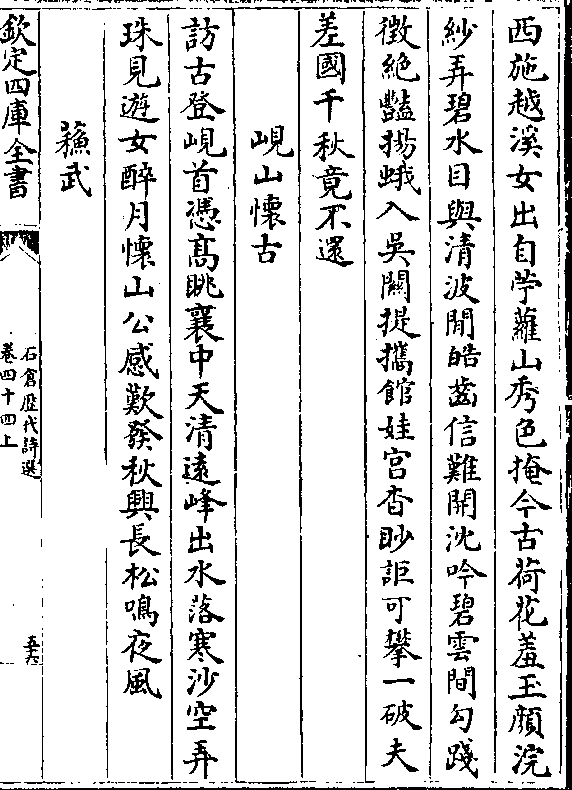 西施越溪女出自苧蘿山秀色掩今古荷花羞玉顔浣
紗弄碧水目與清波閒皓齒信難開沈吟碧雲間勾踐
徵絶豔揚蛾入吳關提攜館娃宫杳眇詎可攀一破夫
差國千秋竟不還
峴山懷古
訪古登峴首憑髙眺襄中天清逺峰出水落寒沙空弄
珠見遊女醉月懷山公感歎發秋興長松鳴夜風
蘓武
欽定四庫全書
石倉歴代詩選
卷四十四上
五十六